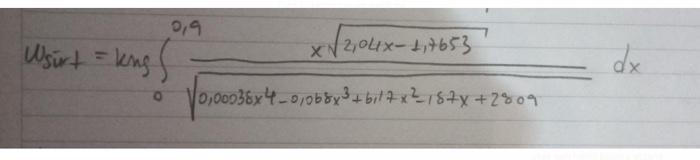 Wsürt = kmg ∫₀^0,9 x√(2,04x-1,7653) / √(0,00038x⁴-0,068x³+6,17x²-187x+2809) dx